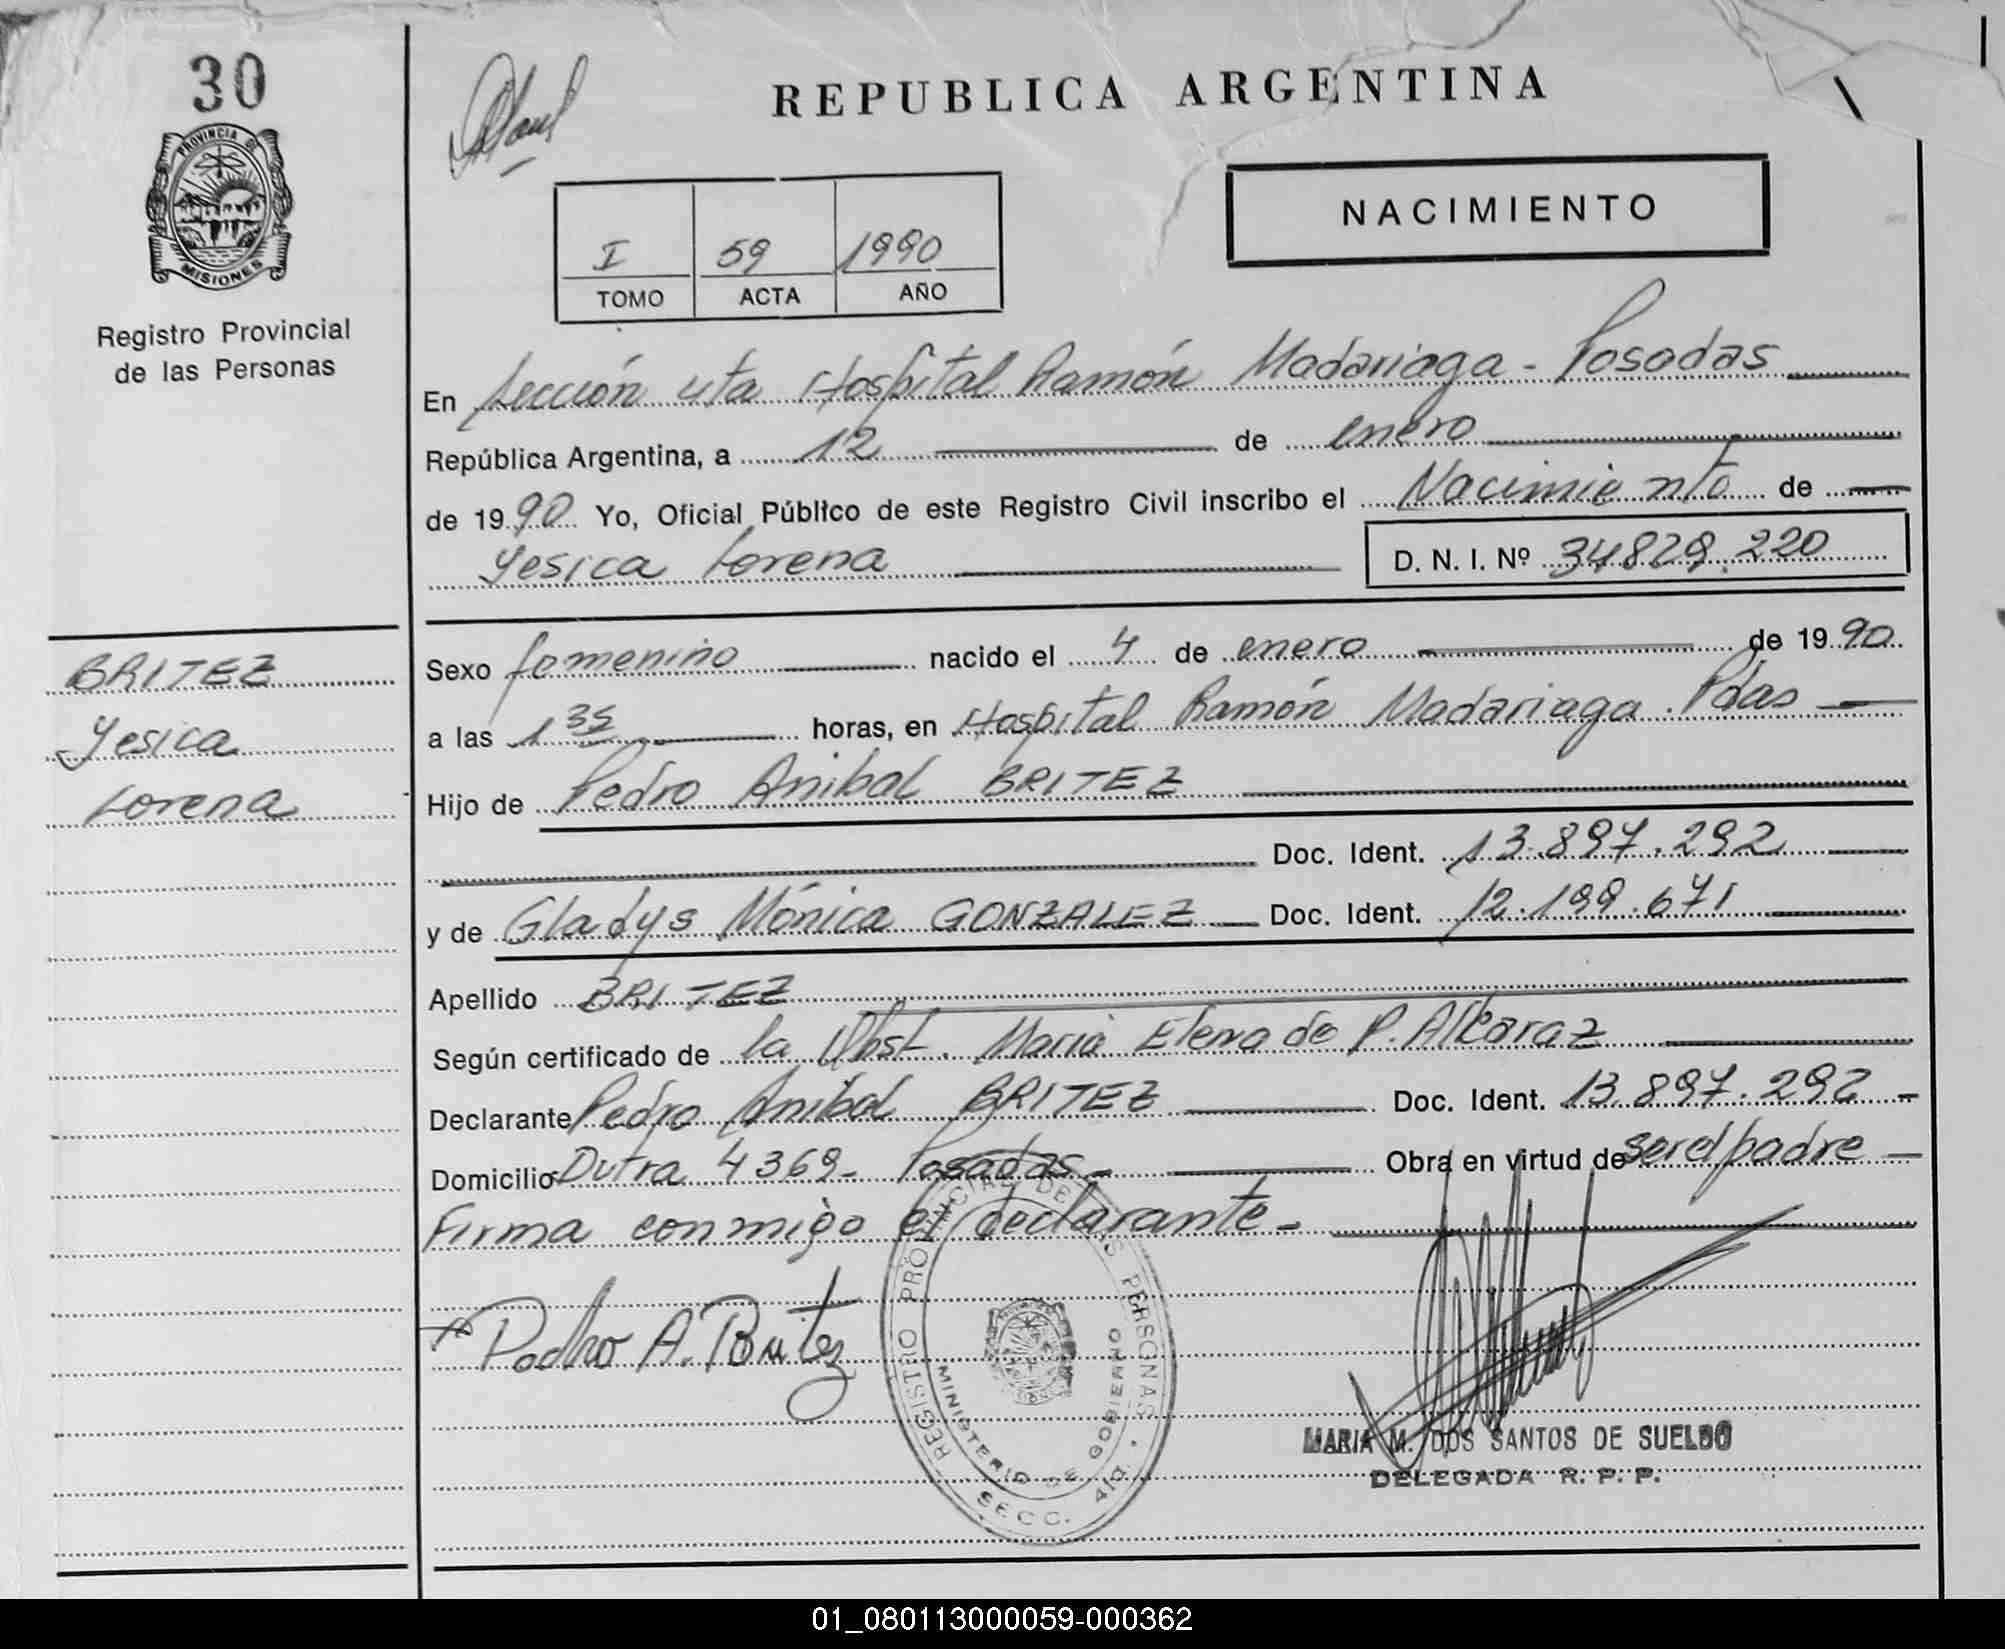 30
PROVINCIA DE
MISIONES
Registro Provincial
de las Personas
BRITEZ
Yesica
Lorena
REPUBLICA ARGENTINA
NACIMIENTO
I 59 1990
TOMO ACTA AÑO
En Sección 4ta Hospital Ramón Madariaga - Posadas
República Argentina, a 12 de enero
de 1990 Yo, Oficial Público de este Registro Civil inscribo el Nacimiento de
Yesica Lorena D. N. I. Nº 34829.220
Sexo femenino nacido el 4 de enero de 1990
a las 1 35 horas, en Hospital Ramón Madariaga. Pdas
Hijo de Pedro Anibal BRITEZ
Doc. Ident. 13.897.292
y de Gladys Mónica GONZALEZ Doc. Ident. 12.199.671
Apellido BRITEZ
Según certificado de la Obst. Maria Elena de P. Alcaraz
Declarante Pedro Anibal BRITEZ Doc. Ident. 13.897.292 -
Domicilio Dutra 4369- Posadas- Obra en virtud de ser el padre
Firma conmigo el declarante-
Pedro A. Britez
REGISTRO PROVINCIAL DE LAS PERSONAS
MINISTERIO DE GOBIERNO
SECC. 4ta.
MARIA M. DOS SANTOS DE SUELDO
DELEGADA R. P. P.
01_080113000059-000362